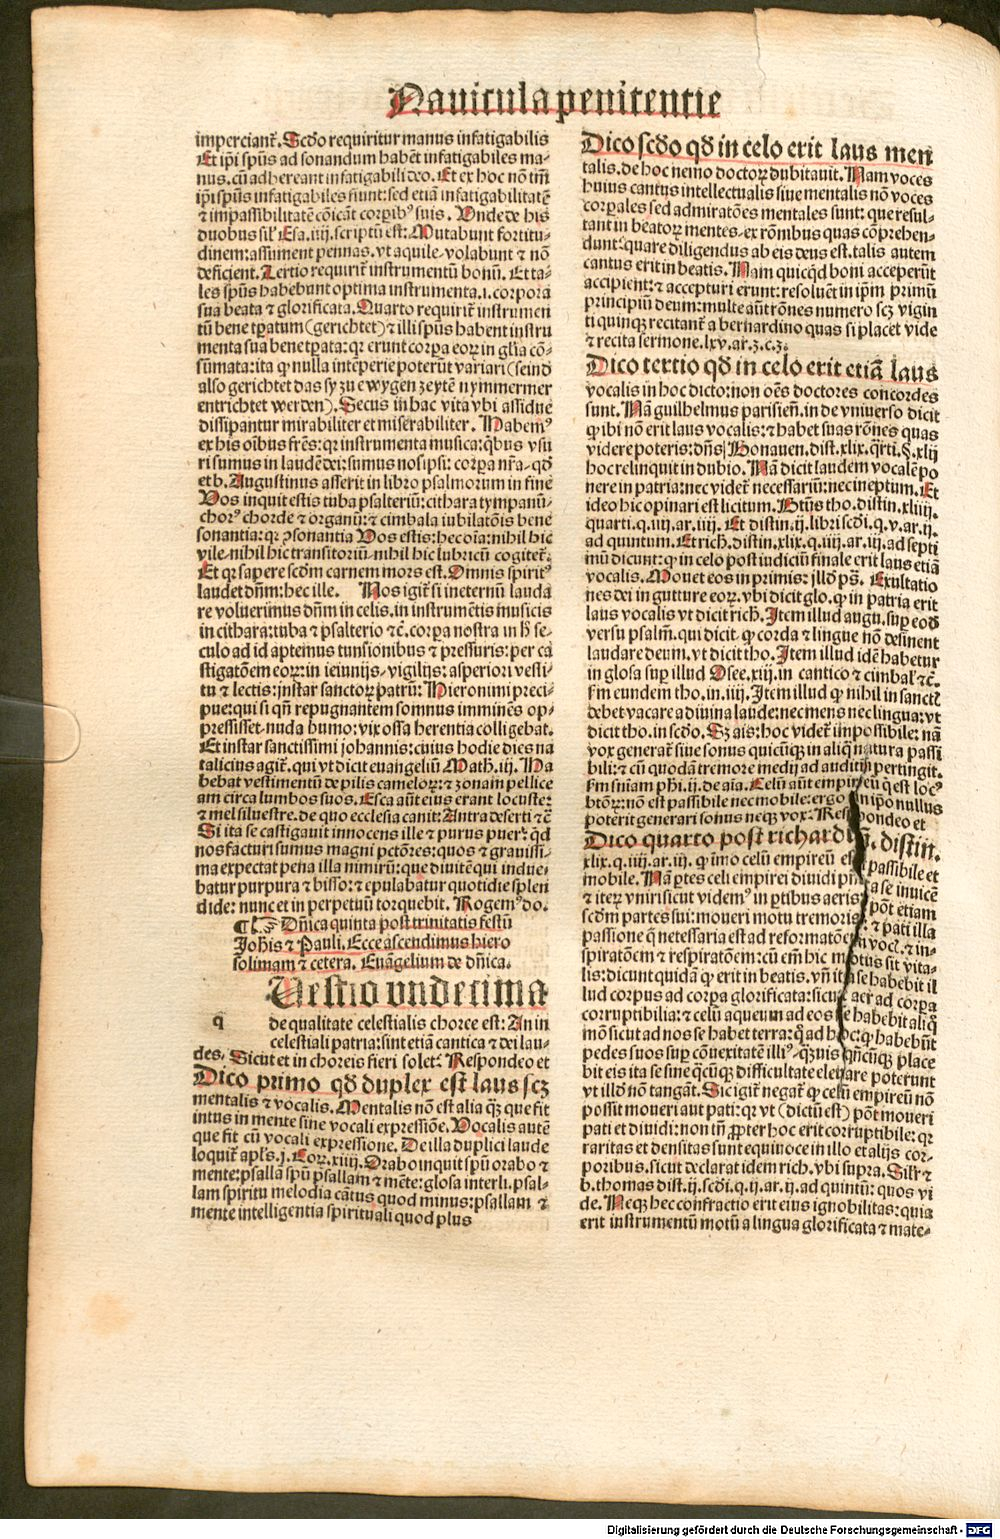 Nauicula penitentie
imperciant᷑. Scd̄o requiritur manus infatigabilis
Et ip̄i spūs ad sonandum habēt infatigabiles ma⸗
nus. cū adhereant infatigabili deo. Et ex hoc nō tm̄
ip̄i spūs infatigabiles fiunt: sed etiā infatigabilitatē
⁊ impassibilitatē cōicāt corꝑibꝰ suis. Vnde de his
duobus sil᷑ Esa. iiij. scriptū est: Mutabunt fortitu⸗
dinem: assument pennas. vt aquile⸗ volabunt ⁊ nō
deficient. Tertio requirit᷑ instrumentū bonū. Et ta⸗
les spūs habebunt optima instrumenta. i. corpora
sua beata ⁊ glorificata. Quarto requirit᷑ instrumen
tū bene tꝑatum (gerichtet) ⁊ illi spūs habent instru
menta sua bene tꝑata: qꝛ erunt corꝑa eoꝝ in gl̄ia cō⸗
sūmata: ita ꝙ nulla intēperie poterūt variari (seind
also gerichtet das sy zu ewygen zeytē nymmermer
entrichtet werden). Secus in hac vita vbi assidue
dissipantur mirabiliter et miserabiliter. Habemꝰ
ex his oībus fr̄es: qꝛ instrumenta musica: qͥbus vsu
ri sumus in laudē dei: sumus nos ipsi: corꝑa nr̄a⸗ qd̄
et b. Augustinus asserit in libro psalmorum in fine
Vos inquit estis tuba psalteriū: cithara tympanū⸗
chorꝰ chorde ⁊ organū: ⁊ cimbala iubilatōis bene
sonantia: qꝛ ꝯsonantia Vos estis: hec oīa: nihil hic
vile⸗ nihil hic transitoriū⸗ nihil hic lubricū cogitet᷑.
Et qꝛ sapere scd̄m carnem mors est. Omnis spiritꝰ
laudet dn̄m: hec ille. Nos igit᷑ si ineternū lauda
re voluerimus dn̄m in celis. in instrumētis musicis
in cithara: tuba ⁊ psalterio ⁊c̄. corꝑa nostra in h̄ se⸗
culo ad id aptemus tunsionibus ⁊ pressuris: per ca
stigatōem eoꝝ: in ieiunijs⸗ vigilijs: asperiori vesti⸗
tu ⁊ lectis: instar sanctoꝝ patrū: Hieronimi preci⸗
pue: qui si qn̄ repugnantem somnus imminēs op⸗
pressisset⸗ nuda humo: vix ossa herentia colligebat.
Et instar sanctissimi johannis: cuius hodie dies na
talicius agit᷑. qui vt dicit euangeliū Math. iij. Ha
bebat vestimentū de pilis cameloꝝ: ⁊ zonam pellice
am circa lumbos suos. Esca aūt eius erant locuste:
⁊ mel siluestre. de quo ecclesia canit: Antra deserti ⁊c̄
Si ita se castigauit innocens ille ⁊ purus puer: qͥd
nos facturi sumus magni pctōres: quos ⁊ grauissi⸗
ma expectat pena illa nimirū: que diuitē qui indue⸗
batur purpura ⁊ bisso: ⁊ epulabatur quotidie splen
dide: nunc et in perpetuū torquebit. Rogemꝰ do.
Dn̄ica quinta post trinitatis festū
Joh̄is ⁊ Pauli. Ecce ascendimus hiero
solimam ⁊ cetera. Euāgelium de dn̄ica.
Uestio vndecima
q de qualitate celestialis choree est: An in
celestiali patria: sint etiā cantica ⁊ dei lau⸗
des. Sicut et in choreis fieri solet᷑. Respondeo et
Dico primo qd̄ duplex est laus scꝫ
mentalis ⁊ vocalis. Mentalis nō est alia qͣꝫ que fit
intus in mente sine vocali expressiōe. Vocalis autē
que fit cū vocali expressione. De illa duplici laude
loquit᷑ apl̄s. j. Corꝝ. xiiij. Orabo inquit spū orabo ⁊
mente: psallā spū psallam ⁊ mēte: glosa interli. psal⸗
lam spiritu melodia cātus quod minus: psallam ⁊
mente intelligentia spirituali quod plus
Dico scd̄o qd̄ in celo erit laus men
talis. de hoc nemo doctoꝝ dubitauit. Nam voces
huius cantus intellectualis siue mentalis nō voces
corꝑales sed admiratōes mentales sunt: que resul⸗
tant in beatoꝝ mentes⸗ ex rōnibus quas cōprehen⸗
dunt: quare diligendus ab eis deus est. talis autem
cantus erit in beatis. Nam quicqͥd boni acceperūt
accipient: ⁊ accepturi erunt: resoluēt in ip̄m primū
principiū deum: multe aūt rōnes numero scꝫ vigin
ti quinqꝫ recitant᷑ a bernardino quas si placet vide
⁊ recita sermone. lxv. ar. 3. c. 3.
Dico tertio qd̄ in celo erit etiā laus
vocalis in hoc dicto: non oēs doctores concordes
sunt. Nā guilhelmus parisieñ. in de vniuerso dicit
ꝙ ibi nō erit laus vocalis: ⁊ habet suas rōnes quas
videre poteris: dn̄s Bonauen. dist. xlix. qr̄ti. §. xlij
hoc relinquit in dubio. Nā dicit laudem vocalē po
nere in patria: nec videt᷑ necessariū: nec ineptum. Et
ideo hic opinari est licitum. Btūs tho. distin. xliiij.
quarti. q. iiij. ar. iiij. Et distin. ij. libri scd̄i. q. v. ar. ij.
ad quintum. Et rich. distin. xlix. q. iiij. ar. iij. ad septi
mū dicunt: ꝙ in celo post iudiciū finale erit laus etiā
vocalis. Mouet eos in primis: jllđ pš. Exultatio
nes dei in gutture eoꝝ. vbi dicit glo. ꝙ in patria erit
laus vocalis vt dicit rich. Item illud augu. suꝑ eod̄
versu psalm̄. qui dicit⸗ ꝙ corda ⁊ lingue nō desinent
laudare deum. vt dicit tho. Item illud idē habetur
in glosa suꝑ illud Osee. xiij. in cantico ⁊ cimbal᷑ ⁊c̄.
fm eundem tho. in. iiij. Item illud ꝙ nihil in sanctꝭ
debet vacare a diuina laude: nec mens nec lingua: vt
dicit tho. in scd̄o. Sꝫ ais: hoc videt᷑ impossibile: nā
vox generat᷑ siue sonus quicūqꝫ in aliqͣ natura passi
bili: ⁊ cū quodā tremore medij ad auditū pertingit.
fm sn̄iam ph̄i. ij. de aīa. Celū aūt empireū qͥ est locꝰ
btōꝝ: nō est passibile nec mobile: ergo in ip̄o nullus
poterit generari sonus neqꝫ vox: Respondeo et
Dico quarto post richardū. distin.
xlix. q. iiij. ar. iij. ꝙ imo celū empireū est passibile et
mobile. Nā ꝑtes celi empirei diuidi a se inuicē
⁊ iteꝝ vniri sicut videmꝰ in ꝑtibus aeris: pōt etiam
scd̄m partes sui: moueri motu tremoris: ⁊ pati illa
passione q̄ necessaria est ad reformatōem voci. ⁊ in⸗
spiratōem ⁊ respiratōem: cū em̄ hic motus sit vita⸗
lis: dicunt quidā ꝙ erit in beatis. vn̄ ita se habebit il
lud corpus ad corꝑa glorificata: sicut aer ad corꝑa
corruptibilia: ⁊ celū aqueum ad eos se habebit aliqͦ
mō sicut ad nos se habet terra: qͣ ad hoc: ꝙ habebūt
pedes suos suꝑ cōuexitatē illiꝰ⸗ qͣꝫuis qn̄cūqꝫ place
bit eis ita se sine qͣcūqꝫ difficultate eleuare poterunt
vt illđ nō tangāt. Sic igit᷑ negat᷑ ꝙ celū empireū nō
possit moueri aut pati: qꝛ vt (dictū est) pōt moueri
pati et diuidi: non tm̄ ꝓpter hoc erit corruptibile: qꝛ
raritas et densitas sunt equiuoce in illo et alijs cor⸗
poribus. sicut declarat idem rich. vbi supra. Silr᷑ ⁊
b. thomas dist. ij. scd̄i. q. ij. ar. ij. ad quintū: quos vi
de. Neqꝫ hec confractio erit eius ignobilitas: quia
erit instrumentū motū a lingua glorificata ⁊ mate⸗
Digitalisierung gefördert durch die Deutsche Forschungsgemeinschaft - DFG